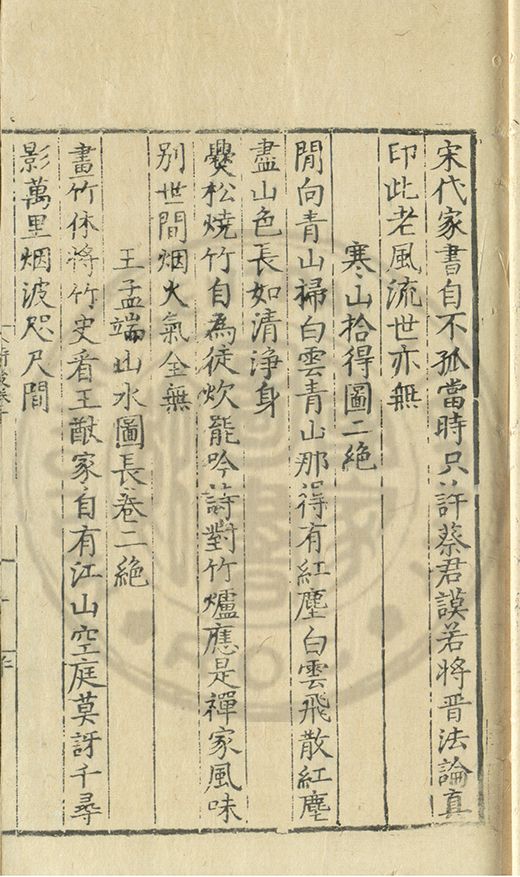 宋代家書自不孤當時只許蔡君謨若將晉法論真
印此老風流世亦無
寒山拾得圖二絶
閒向青山掃白雲青山那得有紅塵白雲飛散紅塵
盡山色長如清淨身
爨松燒竹自為徒炊罷吟詩對竹爐應是禪家風味
别世間烟火氣全無
王孟端山水圖長卷二絶
畫竹休將竹史看王猷家自有江山空庭莫訝千尋
影萬里烟波咫尺間